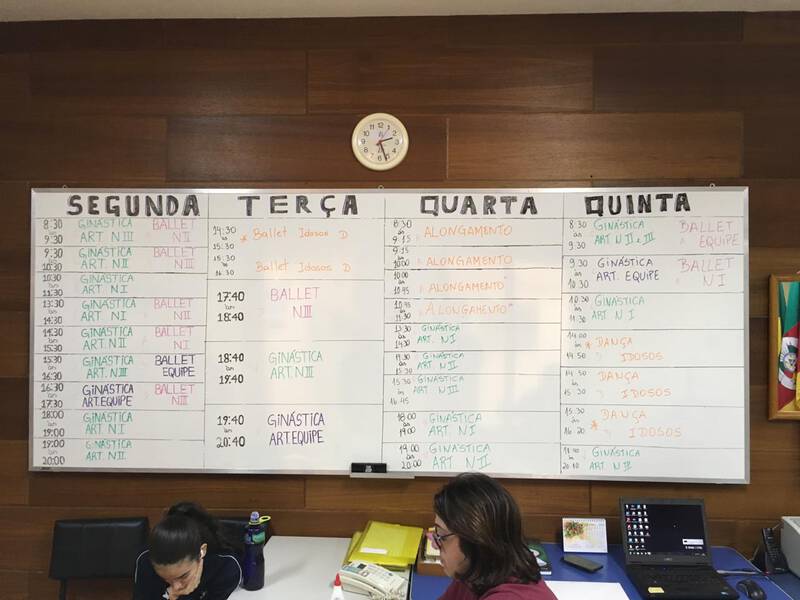 SEGUNDA
8:30 GINÁSTICA BALLET
9:30 ART. N III N II
9:30 GINÁSTICA BALLET
10:30 ART. N II N II
10:30 GINÁSTICA
11:30 ART. N I
13:30 GINÁSTICA BALLET
14:30 ART. N I N II
14:30 GINÁSTICA BALLET
15:30 ART. N II N I
15:30 GINÁSTICA BALLET
16:30 ART. N III EQUIPE
16:30 GINÁSTICA BALLET
17:30 ART. EQUIPE N III
18:00 GINÁSTICA
19:00 ART. N I
19:00 GINÁSTICA
20:00 ART. N II
TERÇA
14:30
às * Ballet Idosos D
15:30
15:30
às Ballet Idosos D
16:30
17:40 BALLET
às N III
18:40
18:40 GINÁSTICA
às ART. N III
19:40
19:40 GINÁSTICA
às ART. EQUIPE
20:40
QUARTA
8:30
às ALONGAMENTO
9:15
9:15
às ALONGAMENTO
10:00
10:00
às ALONGAMENTO
10:45
10:45
às ALONGAMENTO
11:30
13:30 GINÁSTICA
14:30 ART. N I
14:30 GINÁSTICA
15:30 ART. N II
15:30 GINÁSTICA
às ART. N III
16:45
18:00 GINÁSTICA
às ART. N I
19:00
19:00 GINÁSTICA
às ART. N II
20:00
QUINTA
8:30 GINÁSTICA BALLET
às ART. N II e III EQUIPE
9:30
9:30 GINÁSTICA BALLET
às ART. EQUIPE N I
10:30
10:30 GINÁSTICA
às ART. N I
11:30
14:00
às * DANÇA
14:50 IDOSOS
14:50
às DANÇA
15:30 IDOSOS
15:30 DANÇA
às * IDOSOS
16:20
GINÁSTICA
ART. N III